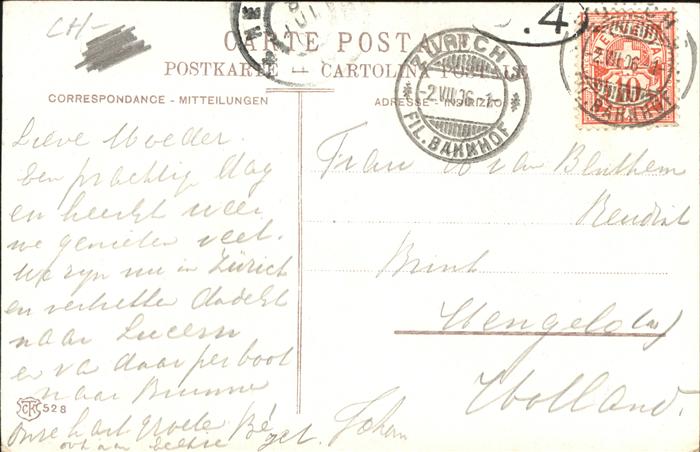 CH-
CARTE POSTALE
POSTKARTE CARTOLINA POSTALE
CORRESPONDANCE - MITTEILUNGEN
ADRESSE - INDIRIZZO
.4
ZÜRICH 3
-2.VII.06.-1
FIL. BAHNHOF
HELVETIA
10
2.VII.06.-1
FIL. BAHNHOF
Lieve Moeder.
Een prachtige dag
en heerlijk weer
we genieten veel.
We zijn nu in Zürich
en vertrekken dadelijk
naar Lucern
en va daar per boot
naar Brunnen
Onze hart. groete
ook aan
get. Johan
528
Frau van Benthem
Brink
Hengelo (o)
Holland.